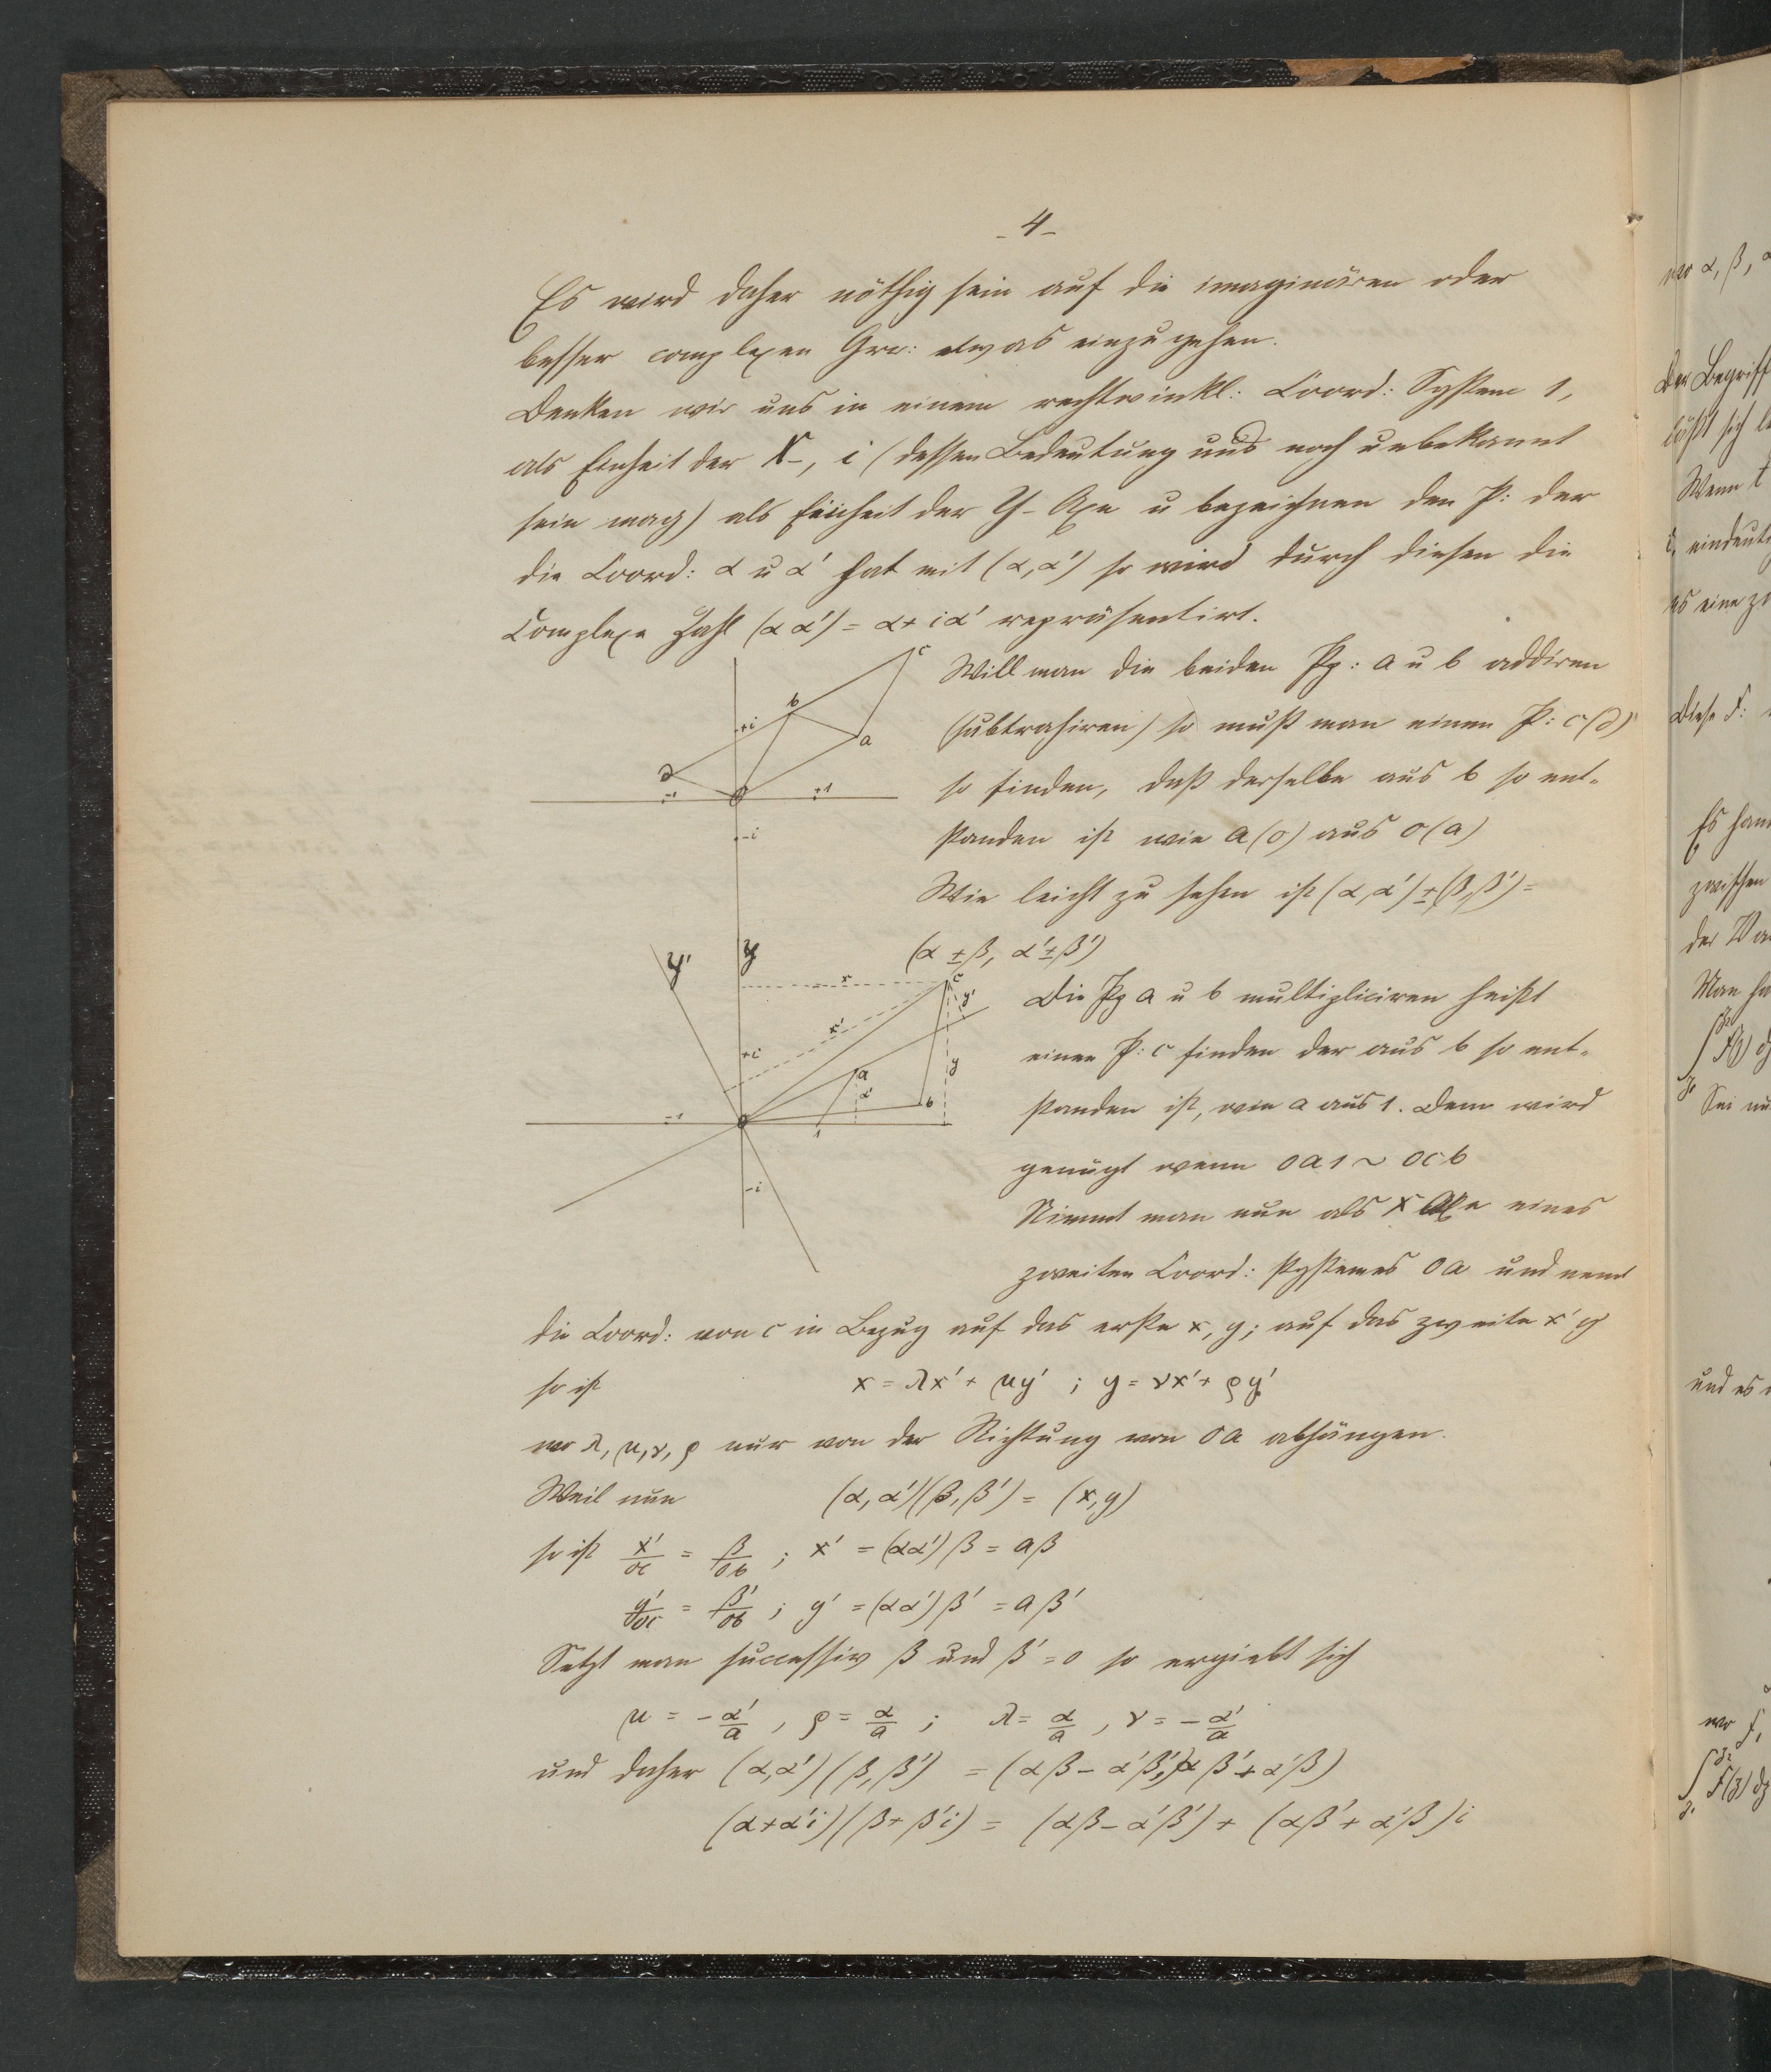 - 4 -
Es wird daher nöthig sein auf die imaginären oder
besser complexen Grö: etwas einzugehen.
Denken wir uns in einem rechtwinkl: Coord: System 1,
als Einheit der X-, i (dessen Bedeutung uns noch unbekannt
sein mag) als Einheit der Y-Axe u bezeichnen den P: der
die Coord: α u α' hat mit (α, α') so wird durch diesen die
Complexe Zahl (α α') = α + iα' repräsentirt.
c
b
+i
a
d
-1
o
+1
-i
Will man die beiden Pp: a u b addiren
(subtrahiren) so muß man einen P: c (d)
so finden, daß derselbe aus b so ent-
standen ist wie a (o) aus o (a)
Wie leicht zu sehen ist (α, α') ± (β, β') =
(α ± β, α' ± β')
y'
y
x
c
y'
x'
+i
y
a
α'
b
-1
o
1
-i
Die Pp a u b multipliciren heißt
einen P: c finden der aus b so ent-
standen ist, wie a aus 1. Dem wird
genügt wenn oa1 ~ ocb
Nimmt man nun als X Axe eines
zweiten Coord: Systemes oa und nennt
die Coord: von c in Bezug auf das erste x, y; auf das zweite x' y'
so ist x = λx' + μy' ; y = νx' + ρy'
wo λ, μ, ν, ρ nur von der Richtung von oa abhängen.
Weil nun (α, α')(β, β') = (x, y)
so ist x'/oc = β/ob ; x' = (αα') β = aβ
y'/oc = β'/ob ; y' = (αα') β' = aβ'
Setzt man successiv β und β' = 0 so ergiebt sich
μ = - α'/a , ρ = α/a ; λ = α/a , ν = - α'/a
und daher (α, α') (β, β') = (αβ - α'β', αβ' + α'β)
(α + α'i)(β + β'i) = (αβ - α'β') + (αβ' + α'β)i
wo α, β,
Der Begriff
läßt sich
Wenn
Diese F:
zwischen
der
Man
Sei
und es
wo